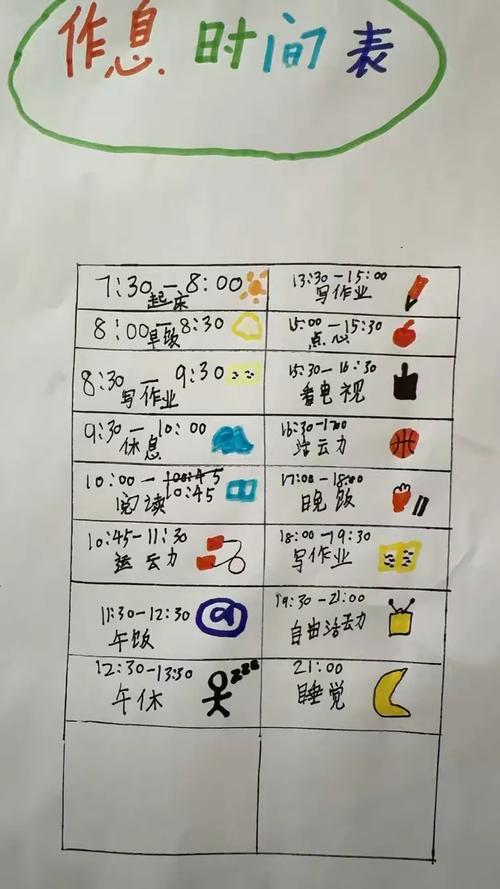 作息时间表
7:30 — 8:00
起床
8:00 — 8:30
早饭
8:30 — 9:30
写作业
9:30 — 10:00
休息
10:00 — 10:45
阅读
10:45 — 11:30
运云力
11:30 — 12:30
午饭
12:30 — 13:30
午休
13:30 — 15:00
写作业
15:00 — 15:30
点心
15:30 — 16:30
看电视
16:30 — 1700
活云力
17:00 — 18:00
晚饭
18:00 — 19:30
写作业
19:30 — 21:00
自由活云力
21:00
睡觉